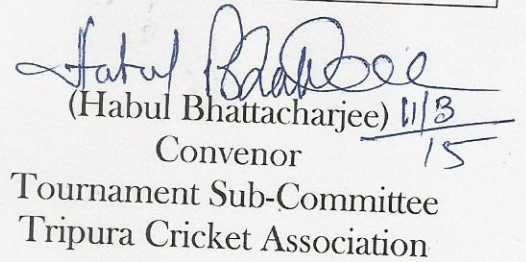 Habul Bhattacharjee
(Habul Bhattacharjee) 11/3
15
Convenor
Tournament Sub-Committee
Tripura Cricket Association